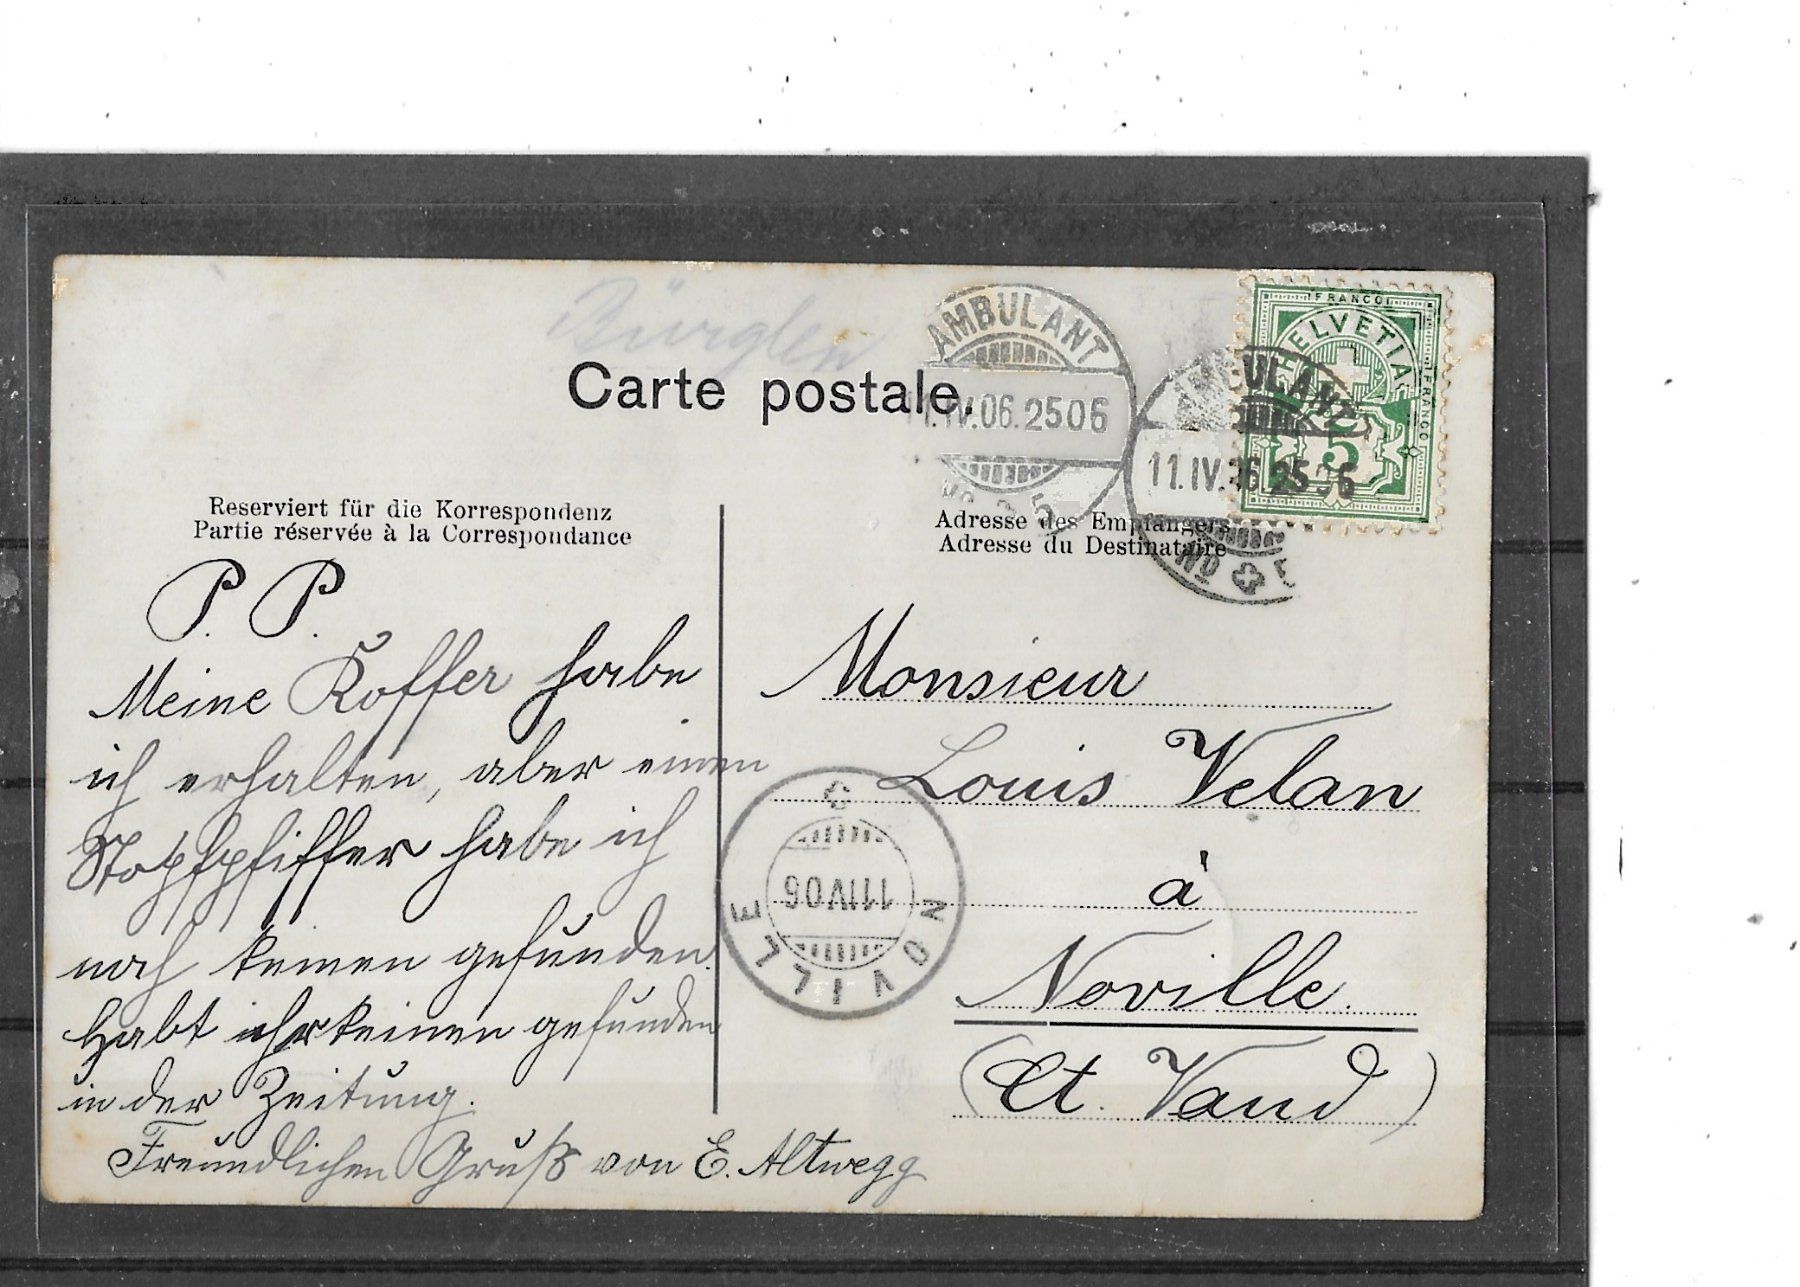 Bürglen
Carte postale.
AMBULANT
11.IV.06.2506
5
FRANCO
FRANCO
HELVETIA
5
AMBULANT
11.IV.06.2506
5
Reserviert für die Korrespondenz
Partie réservée à la Correspondance
P. P.
Meine Koffer habe
ich erhalten, aber einen
Stopfpfiffer habe ich
noch keinen gefunden.
Habt ihr keinen gefunden
in der Zeitung.
Freundlichen Gruß von E. Altwegg
Adresse des Empfängers
Adresse du Destinataire
Monsieur
Louis Velan
à
Noville.
(Ct. Vaud)
NOVILLE
11 IV 06